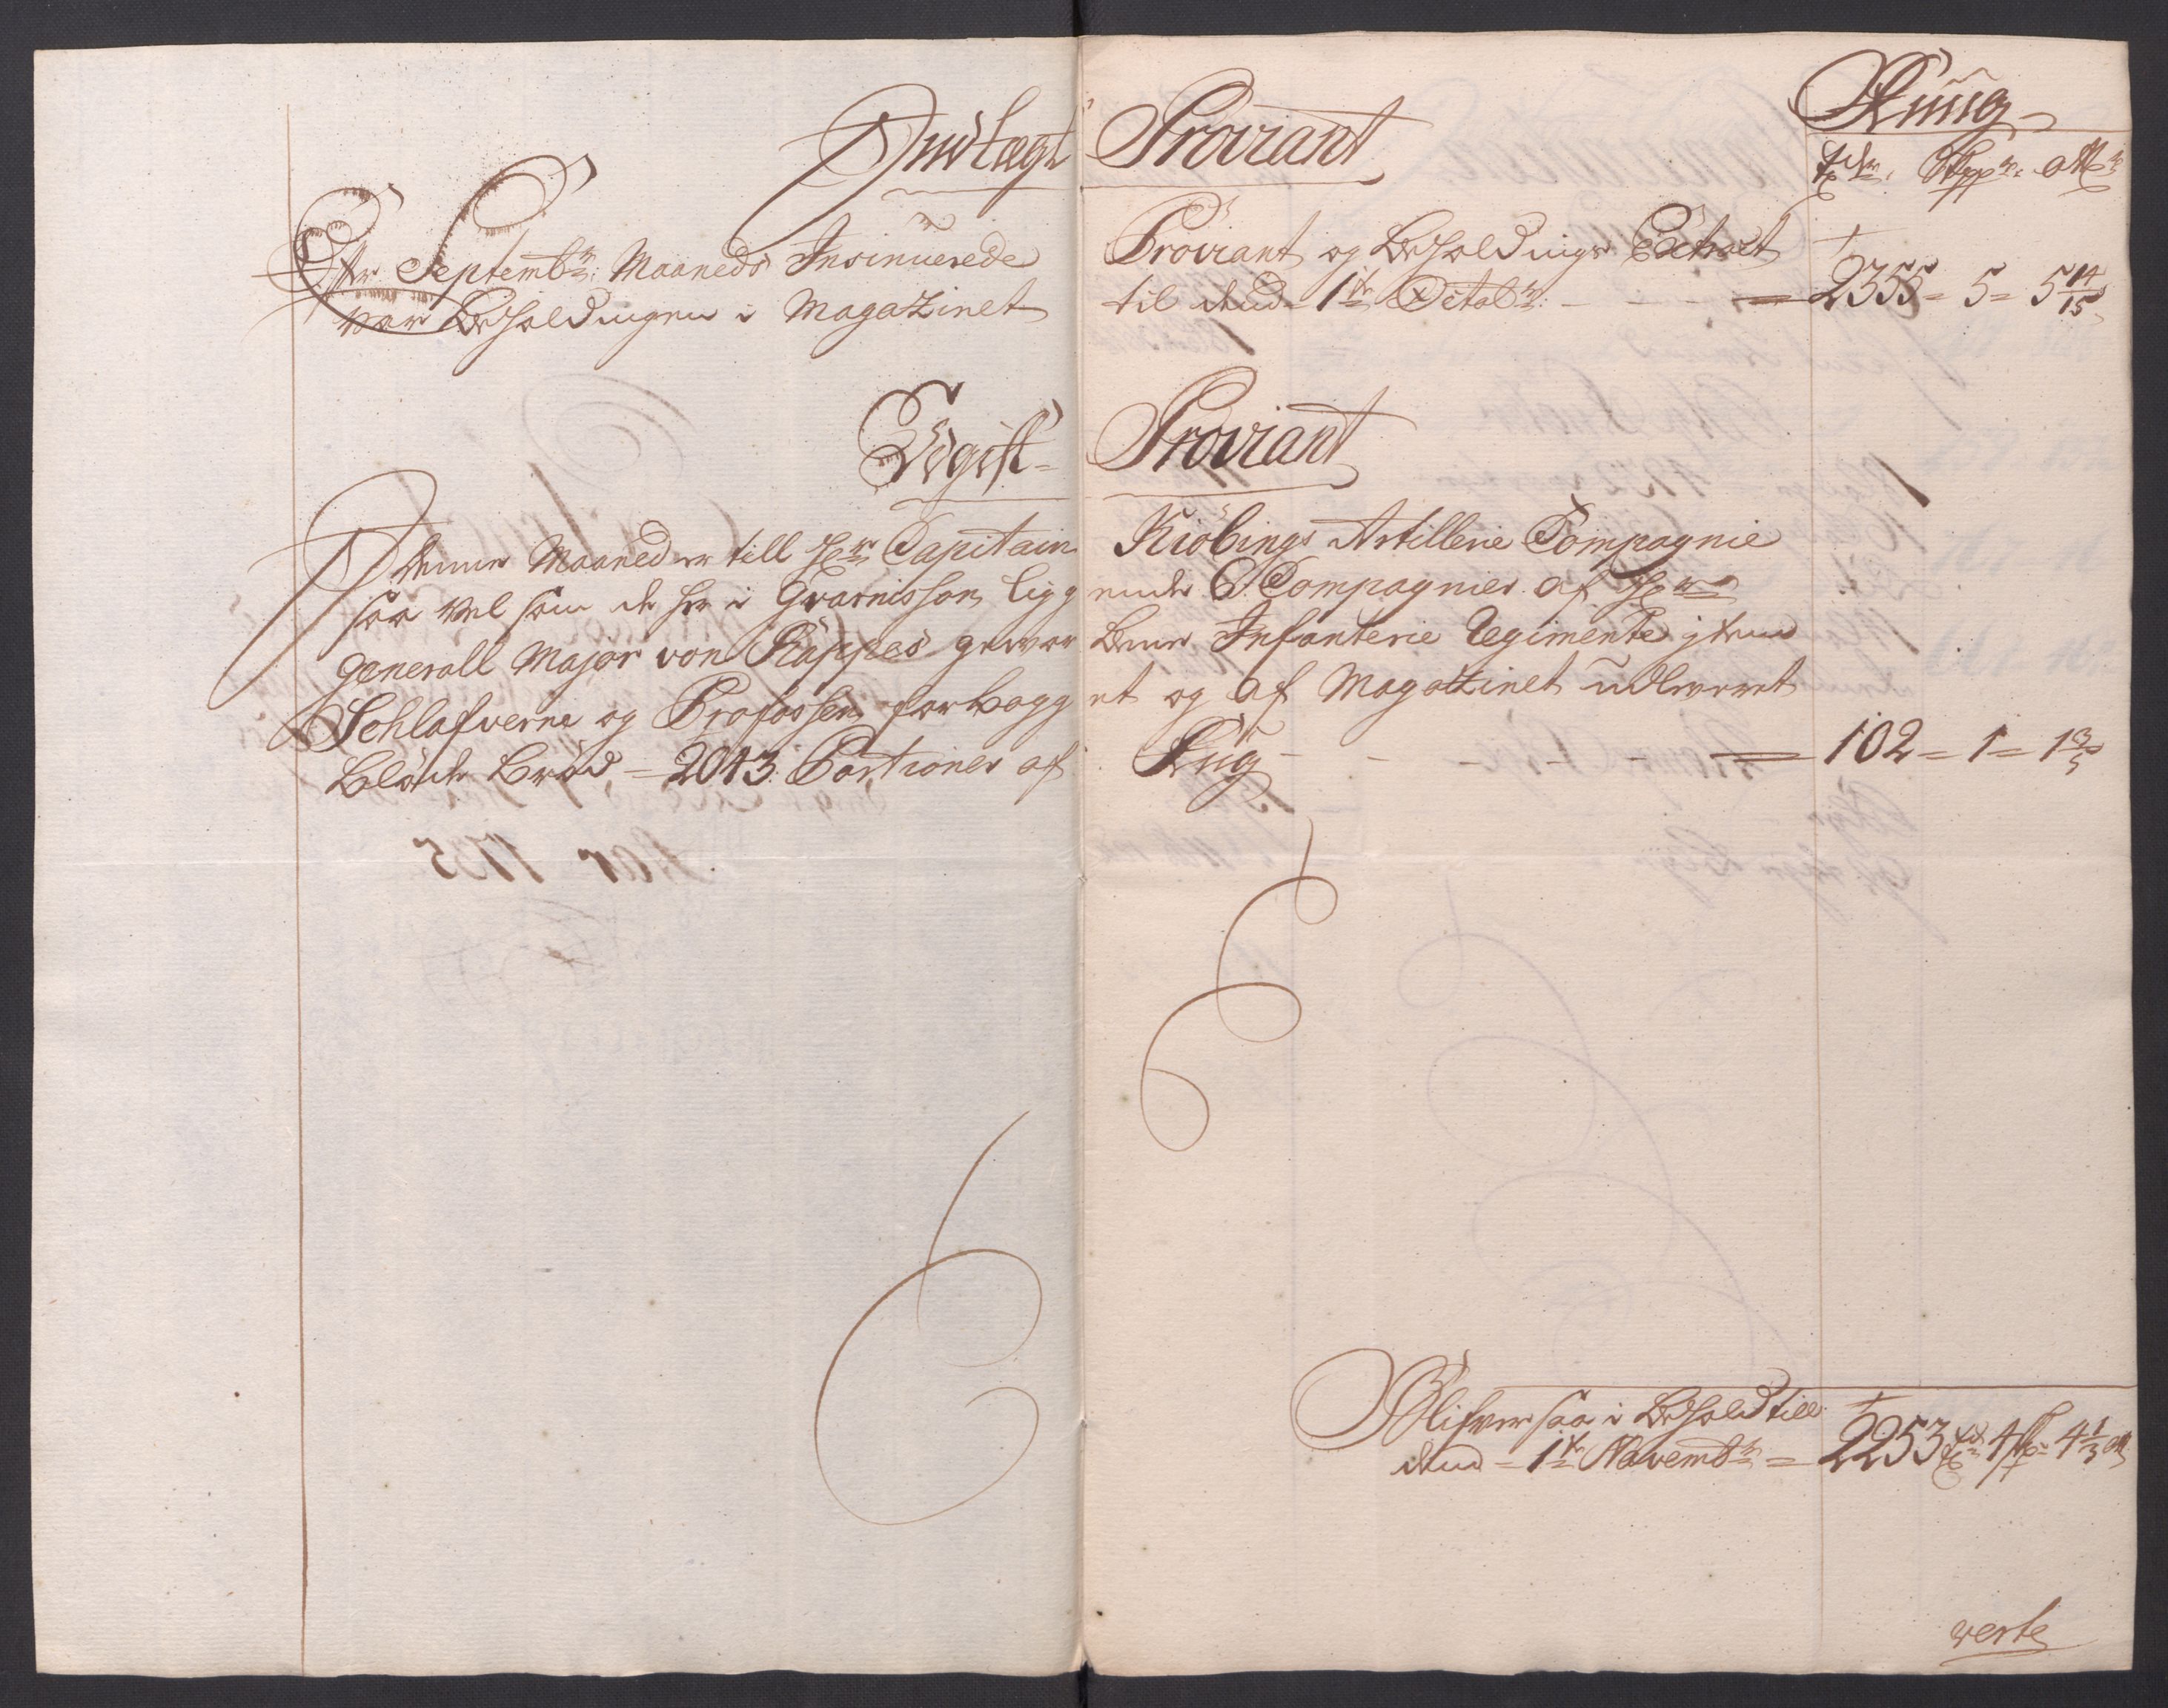 Rung
tdr: Skppr: ottr
Indtægt Proviant
Efter Septembr: Maaneds Insinuerede Proviant og Beholdnings Extract
var Beholdningen i Magazinet til dend 1te Octobr: - - - = 2355 = 5 = 5 14/15
Udgift - Proviant
J denne Maaned er till Hr Capitain Kiöbings Artillerie Compagnie
saa vel som de her i Gvarnisson ligg ende Compagnier af Hr
Generall Major von Kappes gevor bene Infanterie Regimente jtem
Schlafverne og Profossen forbagg et og af Magazinet udleveret
Blöde Bröd, = 2043: Portioner af Rug - - - - = 102 = 1 = 1 3/5
Blifver saa i Behold till
dend = 1te Novembr = 2253 tdr 4 skpr 4 1/3 ott
verte
Aar 1735